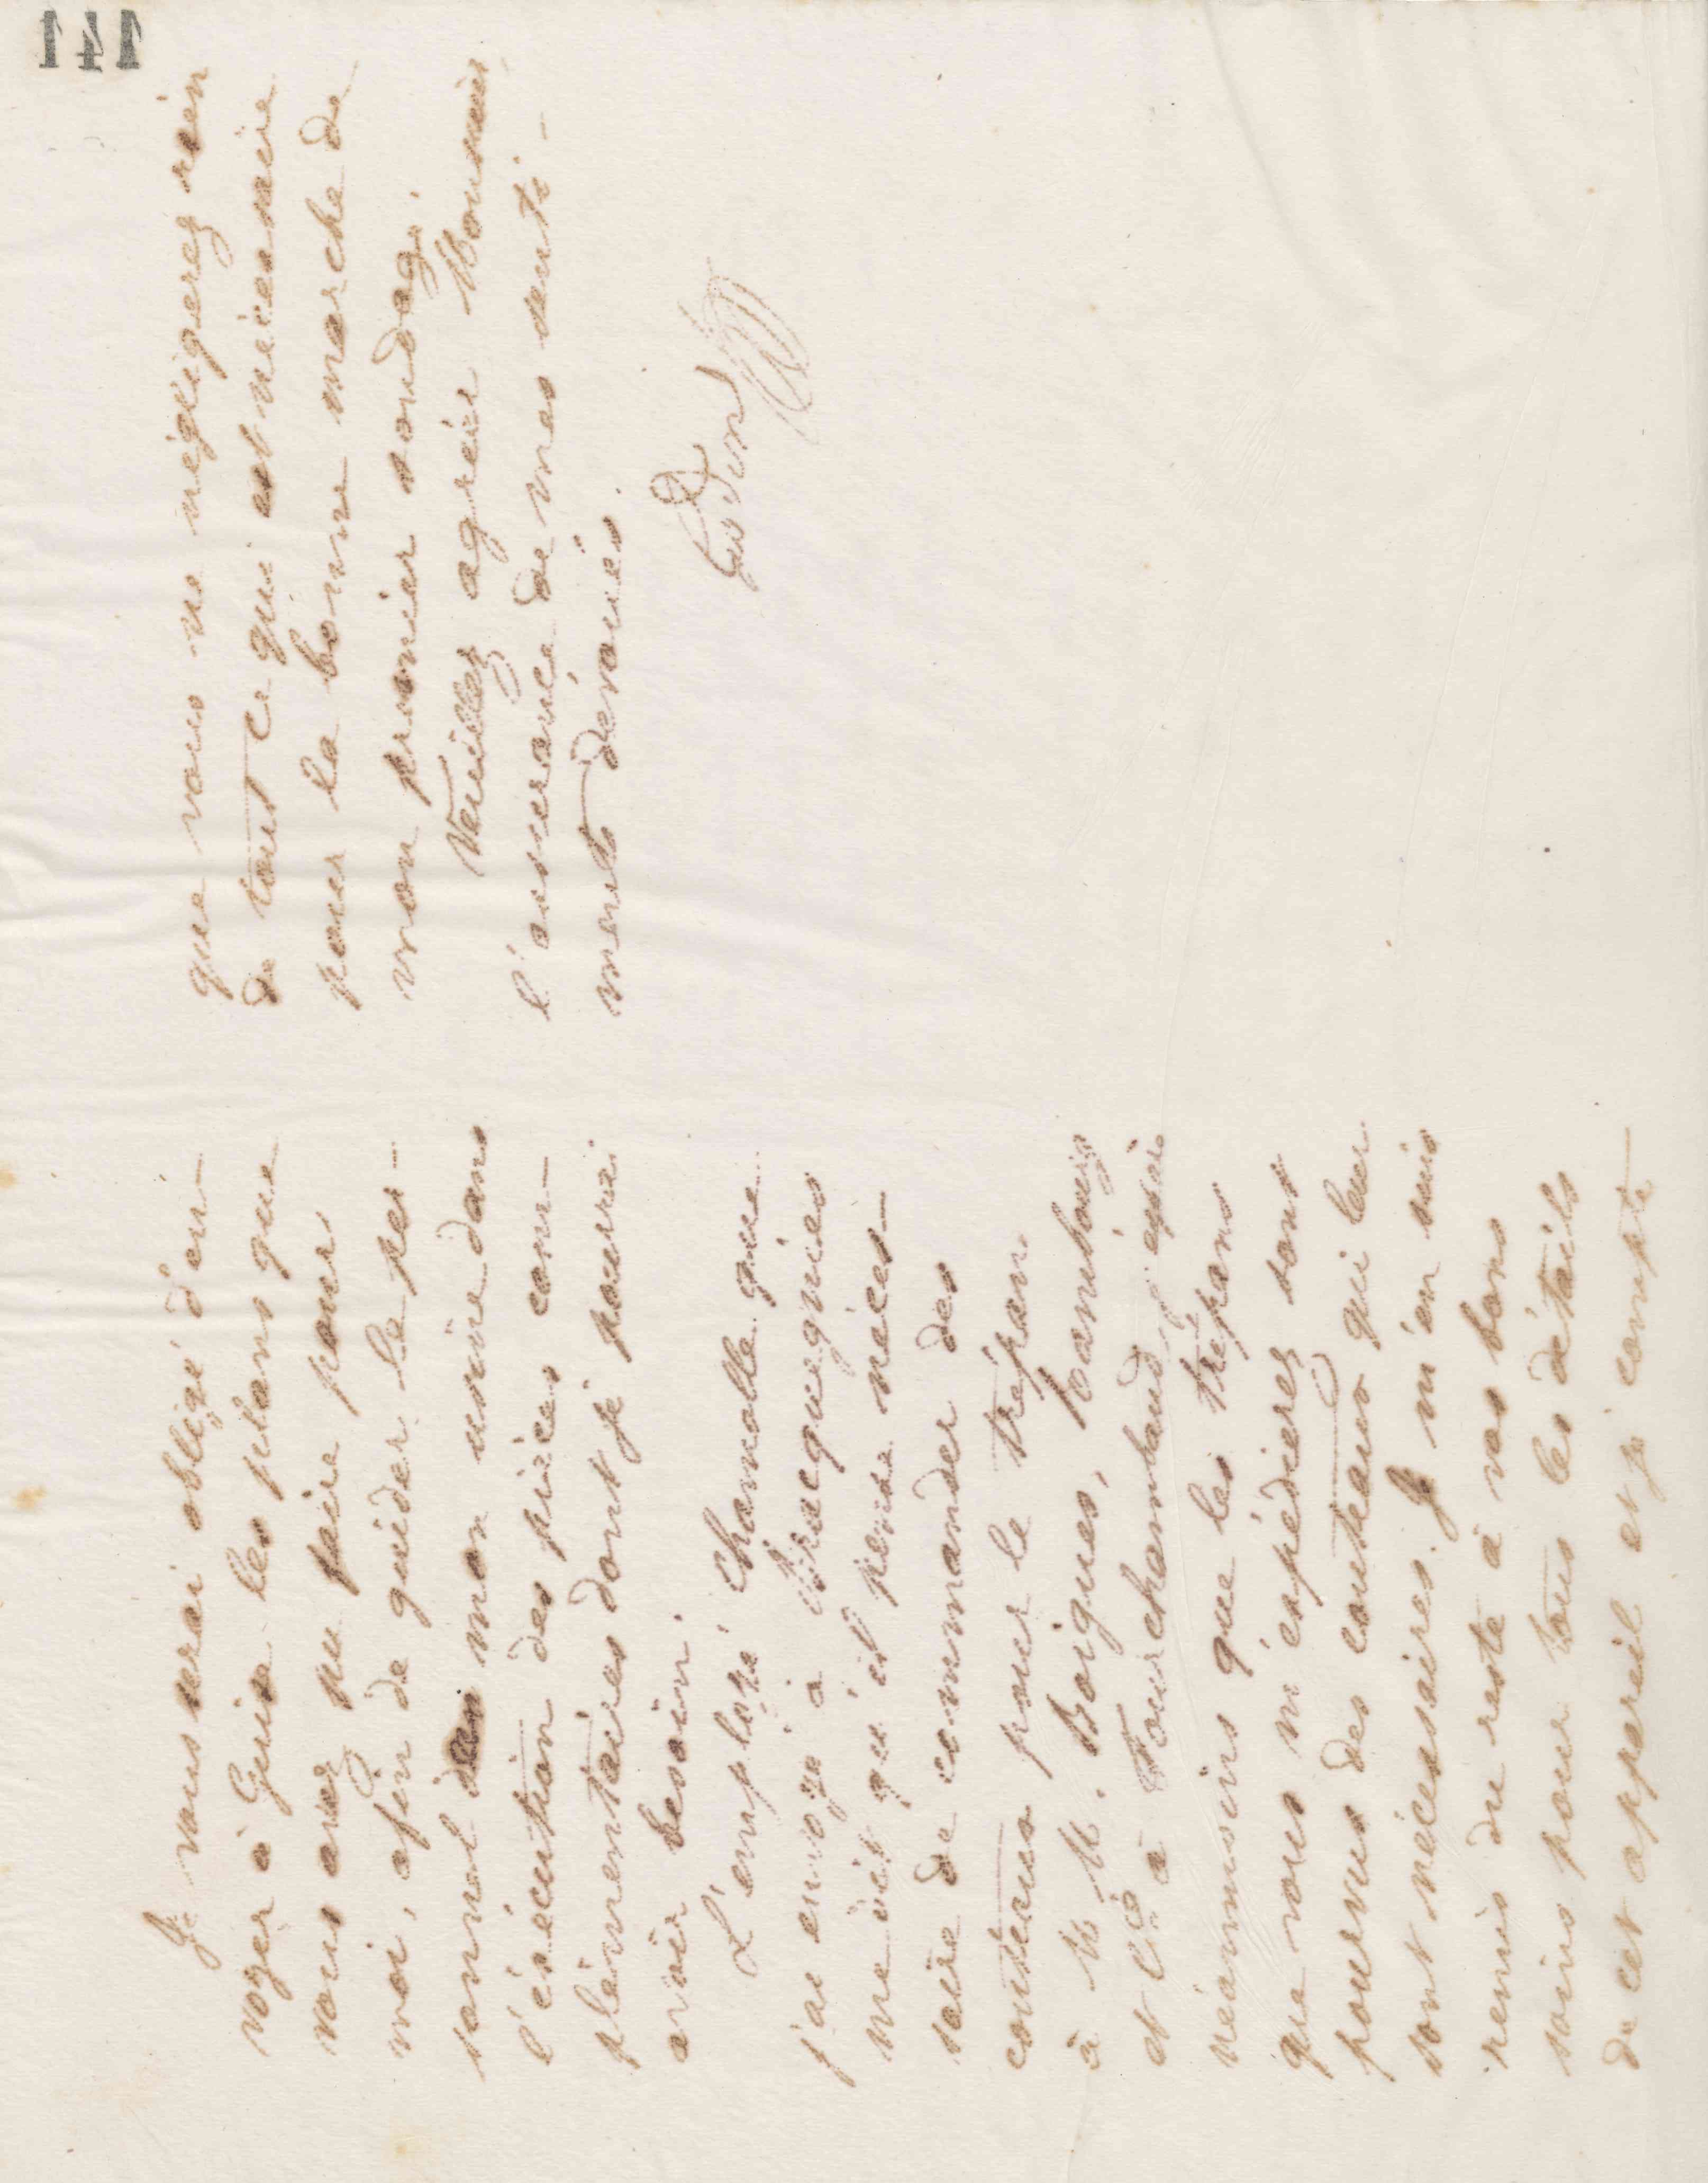 141
Je vous serai obligé d'en-
voyer à Guise les plans que
vous avez pu faire pour
moi, afin de guider le per-
sonnel des mon usine dans
l'exécution des pièces com-
plémentaires dont je pourrai
avoir besoin.
L'employé Chamolle que
j'ai envoyé à
me dit qu'il pense néces-
saire de commander des
couteaux pour le trépan
à MM. Boigues, Rambourg
et Cie à Fourchambaud, espère
néanmoins que les trépans
que vous m'expédierez sont
pourvus des couteaux qui leur
sont nécessaires. Je m'en suis
remis du reste à vos bons
soins pour tous les détails
de cet appareil et je compte
que vous ne négligerez rien
de tout ce qui est nécessaire
pour la bonne marche de
mon premier sondage.
Veuillez agréer Monsieur
l'assurance de mes senti-
ments dévoués.
Godin